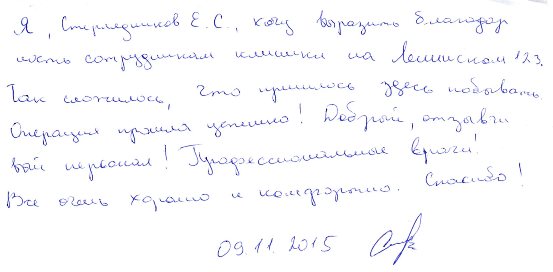 Я, Стерледников Е.С., хочу выразить благодар
ность сотрудникам клиники на Ленинском 123.
Так сложилось, что пришлось здесь побывать.
Операция прошла успешно! Добрый, отзывчи
вый персонал! Профессиональные врачи!
Все очень хорошо и комфортно. Спасибо!
09.11.2015